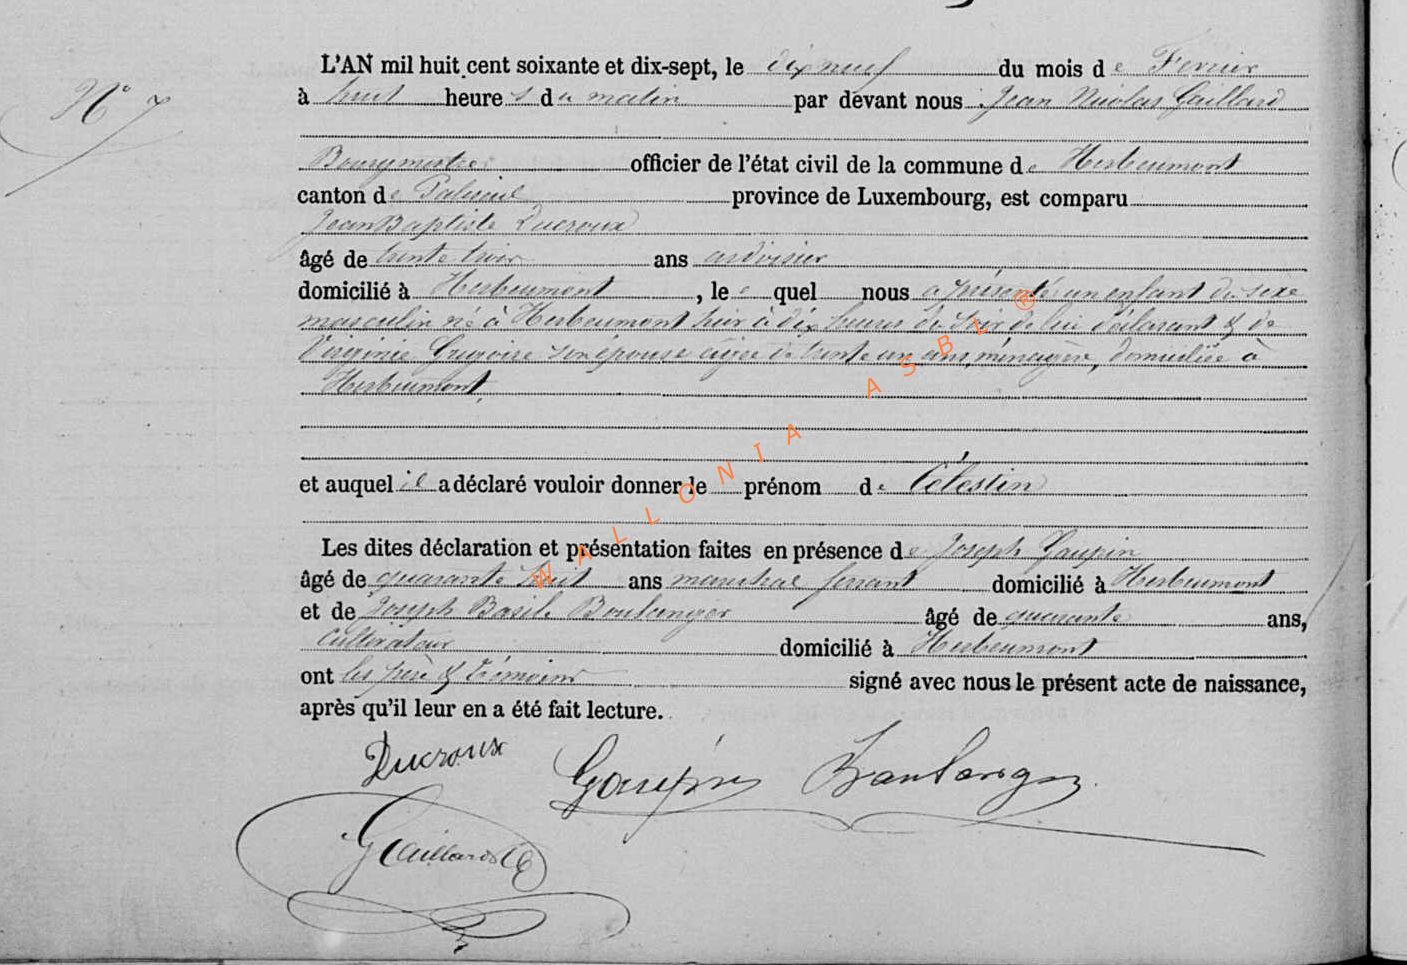 L'AN mil huit cent soixante et dix-sept, le dix neuf du mois de Fevrier
N° 7
à huit heures du matin par devant nous Jean Nicolas Gaillard
Bourgmestre officier de l'état civil de la commune de Herbeumont
canton de Paliseul province de Luxembourg, est comparu
Jean Baptiste Ducroux
âgé de trente trois ans ardoisier
domicilié à Herbeumont, lequel nous a présenté un enfant du sexe
masculin né à Herbeumont hier à dix heures du soir de lui déclarant & de
Virginie Grégoire son épouse agée de trente un ans, ménagère, domiciliée à
Herbeumont.
et auquel il a déclaré vouloir donner le prénom de Célestin
Les dites déclaration et présentation faites en présence de Joseph Goupin
âgé de quarante huit ans maréchal ferrant domicilié à Herbeumont
et de Joseph Basile Boulanger âgé de quarante ans,
cultivateur domicilié à Herbeumont
ont les père & témoins signé avec nous le présent acte de naissance,
après qu'il leur en a été fait lecture.
Ducroux Goupin Boulanger
Gaillard
WALLONIA ASBL ®